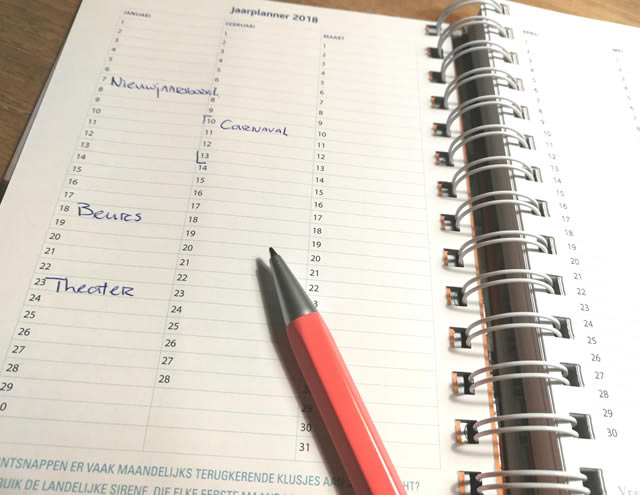 Jaarplanner 2018
JANUARI
1
2
3
4
5
6
7 Nieuwjaarsborrel
8
9
10
11
12
13
14
15
16
17
18 Beurs
19
20
21
22
23 Theater
24
25
26
27
28
29
0
FEBRUARI
1
2
3
4
5
6
7
8
9
10 CARNAVAL
11
12
13
14
15
16
17
18
19
20
21
22
23
24
25
26
27
28
MAART
1
2
3
4
5
6
7
8
9
10
11
12
13
14
15
16
17
18
19
20
21
22
3
29
30
31
APRIL
18
19
20
21
22
23
24
25
26
27
28
29
30
MEI
NTSNAPPEN ER VAAK MAANDELIJKS TERUGKERENDE KLUSJES AAN HT?
UIK DE LANDELIJKE SIRENE, DIE ELKE EERSTE